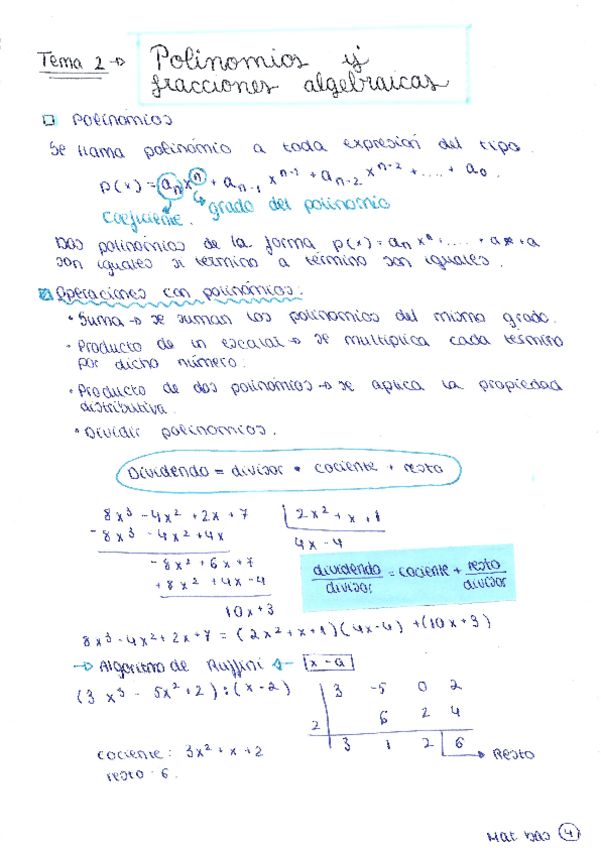 Tema 2 → Polinomios y
fracciones algebraicas
Polinomios
Se llama polinomio a toda expresión del tipo.
p(x) = aₙxⁿ + aₙ₋₁ xⁿ⁻¹ + aₙ₋₂ xⁿ⁻² + .... + a₀.
coeficiente. grado del polinomio
Dos polinomios de la forma p(x) = aₙxⁿ + .... + ax + a
son iguales si término a término son iguales.
Operaciones con polinomios:
• Suma → se suman los polinomios del mismo grado.
• Producto de un escalar → se multiplica cada término
por dicho número.
• Producto de dos polinomios → se aplica la propiedad
distributiva.
• Dividir polinomios.
Dividendo = divisor • cociente + resto
8x³ - 4x² + 2x + 7 2x² + x + 1
- 8x³ - 4x² + 4x 4x - 4
- 8x² + 6x + 7
+ 8x² + 4x - 4
10x + 3
dividendo/divisor = cociente + resto/divisor
8x³ - 4x² + 2x + 7 = (2x² + x + 1)(4x - 4) + (10x + 3)
→ Algoritmo de Ruffini ← x - a
(3x³ - 5x² + 2) : (x - 2)
3 -5 0 2
2 6 2 4
3 1 2 6 → Resto
cociente: 3x² + x + 2
resto: 6.
Mat bas 4